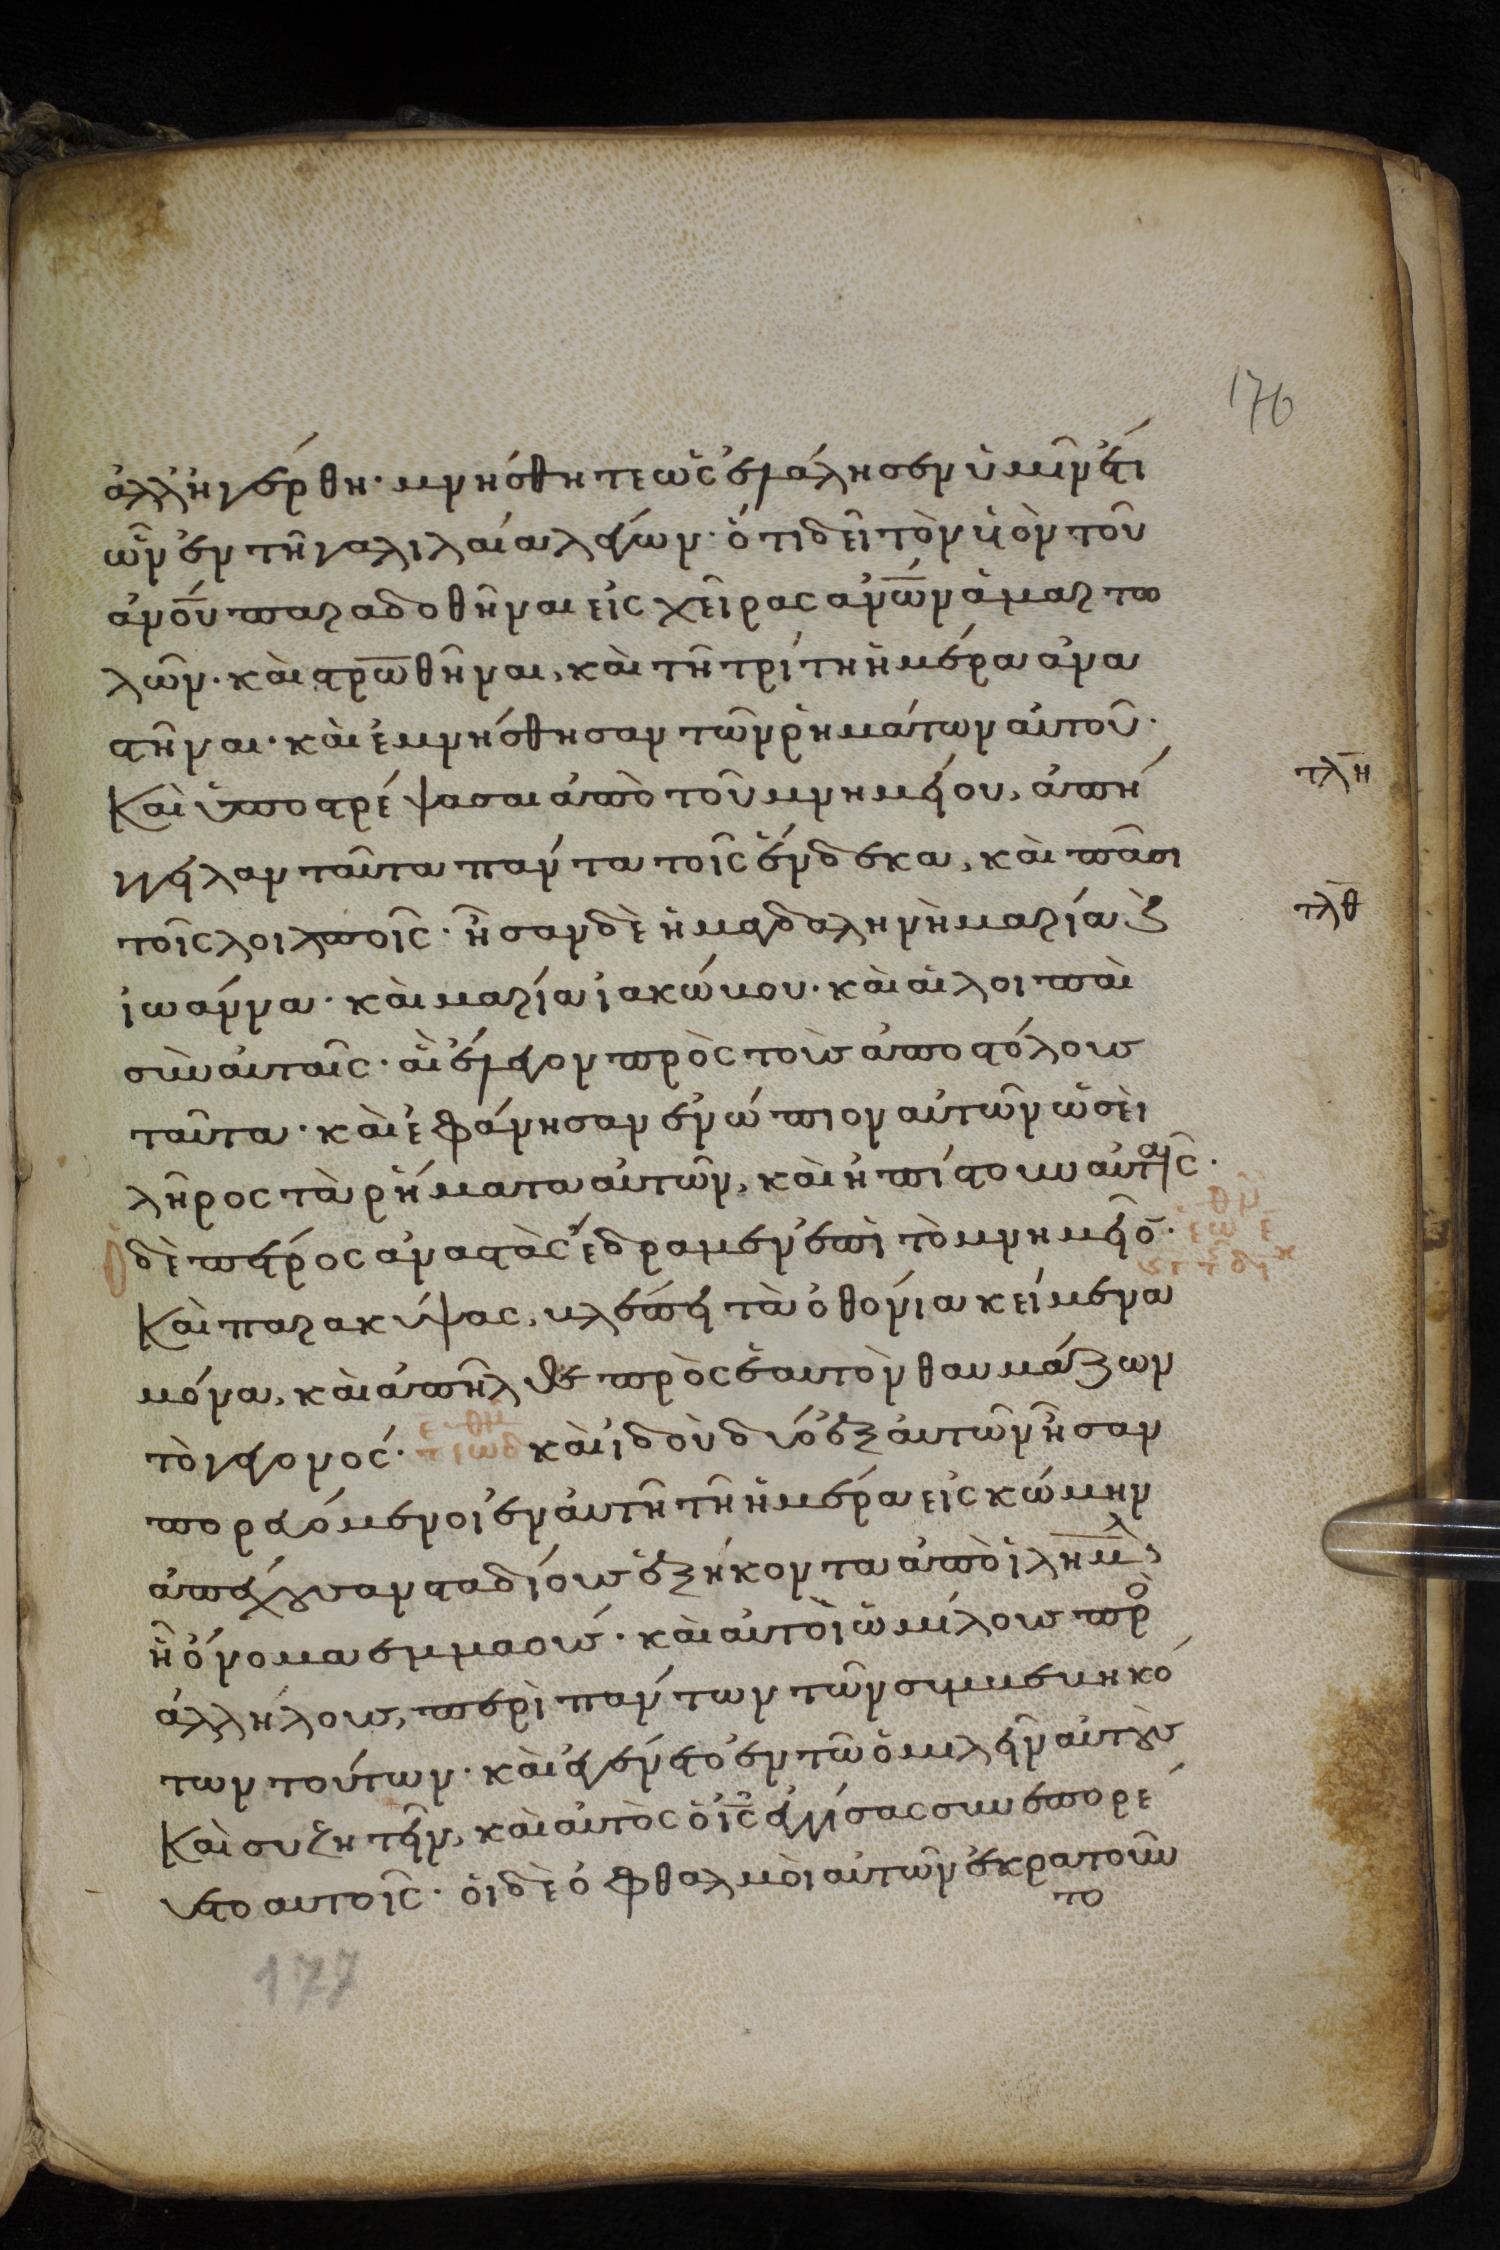 176
ἀλλ' ἠγέρθη· μνήσθητε ὡς ἐλάλησεν ὑμῖν ἔτι
ὢν ἐν τῆ γαλιλαία λέγων· ὅτι δεῖ τὸν υἱὸν τοῦ
ἀνου παραδοθῆναι εἰς χεῖρας ἀνων ἁμαρτω
λῶν· καὶ στρωθῆναι, καὶ τῆ τρίτη ἡμέρα ἀνα
στῆναι· καὶ ἐμνήσθησαν τῶν ῥημάτων αὐτοῦ·
Καὶ ὑποστρέψασαι ἀπὸ τοῦ μνημείου, ἀπή
τλη
γγειλαν ταῦτα πάντα τοῖς ἕνδεκα, καὶ πᾶσι
τοῖς λοιποῖς· ἦσαν δὲ ἡ μαγδαληνὴ μαρία ϗ
τλθ
ἰωάννα· καὶ μαρία ἰακώβου· καὶ αἱ λοιπαὶ
σὺν αὐταῖς· αἳ ἔλεγον πρὸς τοὺς ἀποστόλους
ταῦτα· καὶ ἐφάνησαν ἐνώπιον αὐτῶν ὡσεὶ
λῆρος τὰ ῥήματα αὐτῶν, καὶ ἠπίστουν αὐταῖς·
Ὁ δὲ πέτρος ἀναστὰς ἔδραμεν ἐπὶ τὸ μνημεῖο·
Καὶ παρακύψας, βλέπει τὰ ὀθόνια κείμενα
μόνα, καὶ ἀπῆλθε πρὸς ἑαυτὸν θαυμάζων
τὸ γεγονός· καὶ ἰδοὺ δύο ἐξ αὐτῶν ἦσαν
πορευόμενοι ἐν αὐτῆ τῆ ἡμέρα εἰς κώμην
ἀπέχουσαν σταδίους ἑξήκοντα ἀπὸ ἱλημ,
ἧ ὄνομα ἐμμαούς· καὶ αὐτοὶ ὡμίλουν πρὸ
ἀλλήλους, περὶ πάντων τῶν συμβεβηκό
των τούτων· καὶ ἐγένετο ἐν τῶ ὁμιλεῖν αὐτοὺς
Καὶ συζητεῖν, καὶ αὐτὸς ὁ ις ἐγγίσας συνεπορε
ύετο αὐτοῖς· οἱ δὲ ὀφθαλμοὶ αὐτῶν ἐκρατοῦν
το
177